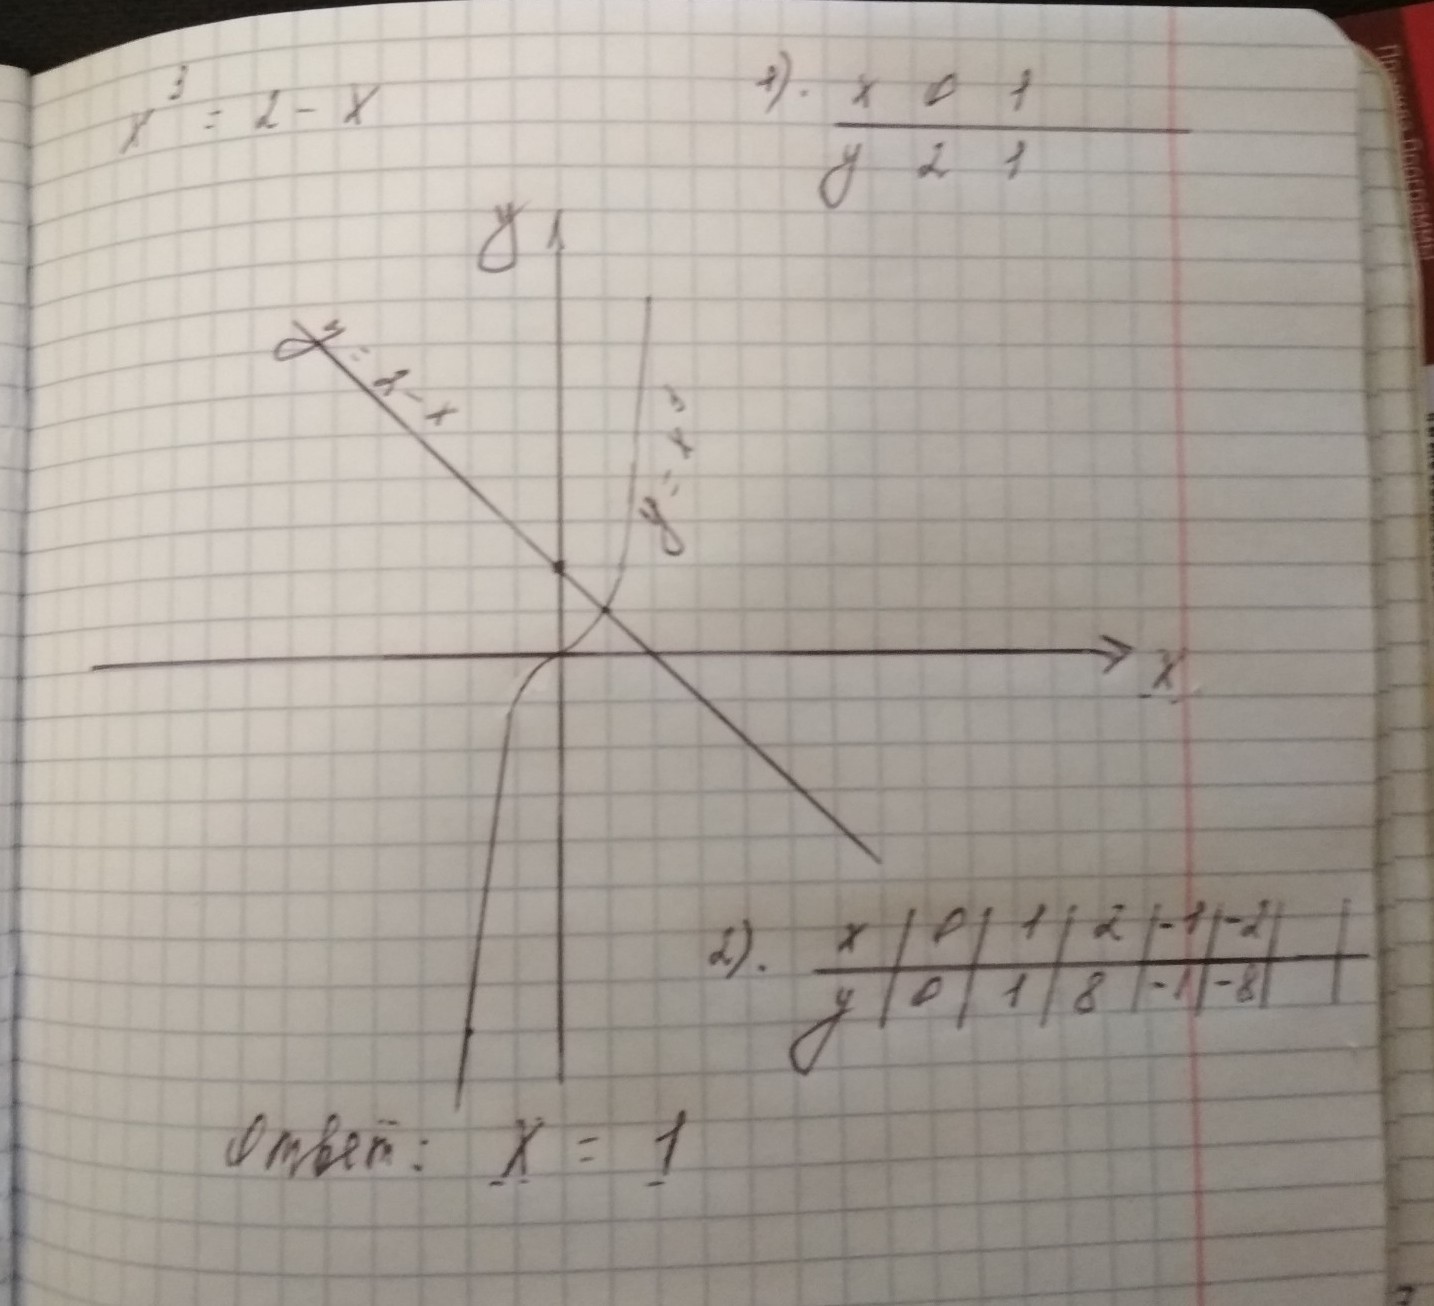 x³ = 2 - x
1). x 0 1
y 2 1
y
y = 2 - x
y = x³
x
2). x | 0 | 1 | 2 | -1 | -2 |
y | 0 | 1 | 8 | -1 | -8 |
Ответ: x = 1